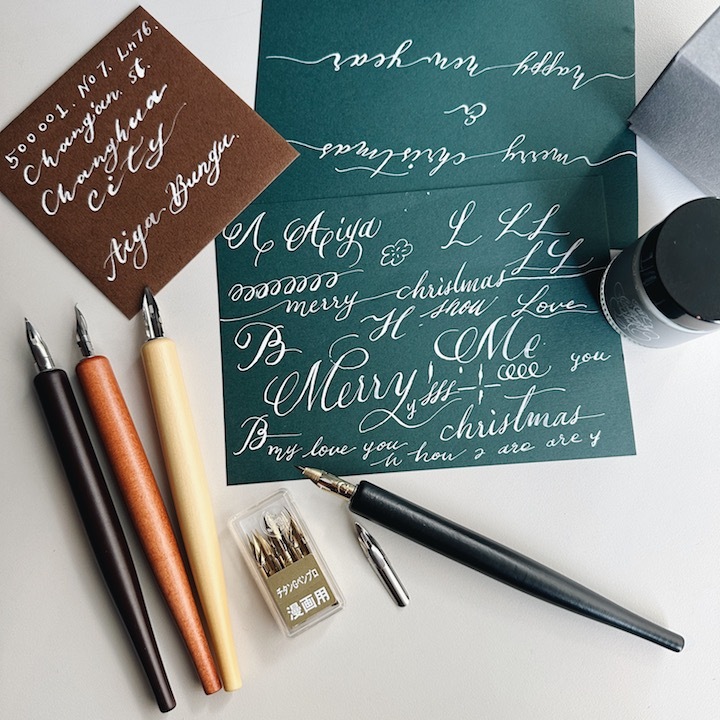 500001. No7. Ln76.
Chang'an. St.
Changhua
City
Aiya. Bungu.
happy new year
&
merry christmas
A Aiya L LL
LL
eeeeeeee merry christmas
H. show Love
B Me
Merry you
y christmas
B my love you
h how are are y
チタンGペンプロ
漫画用